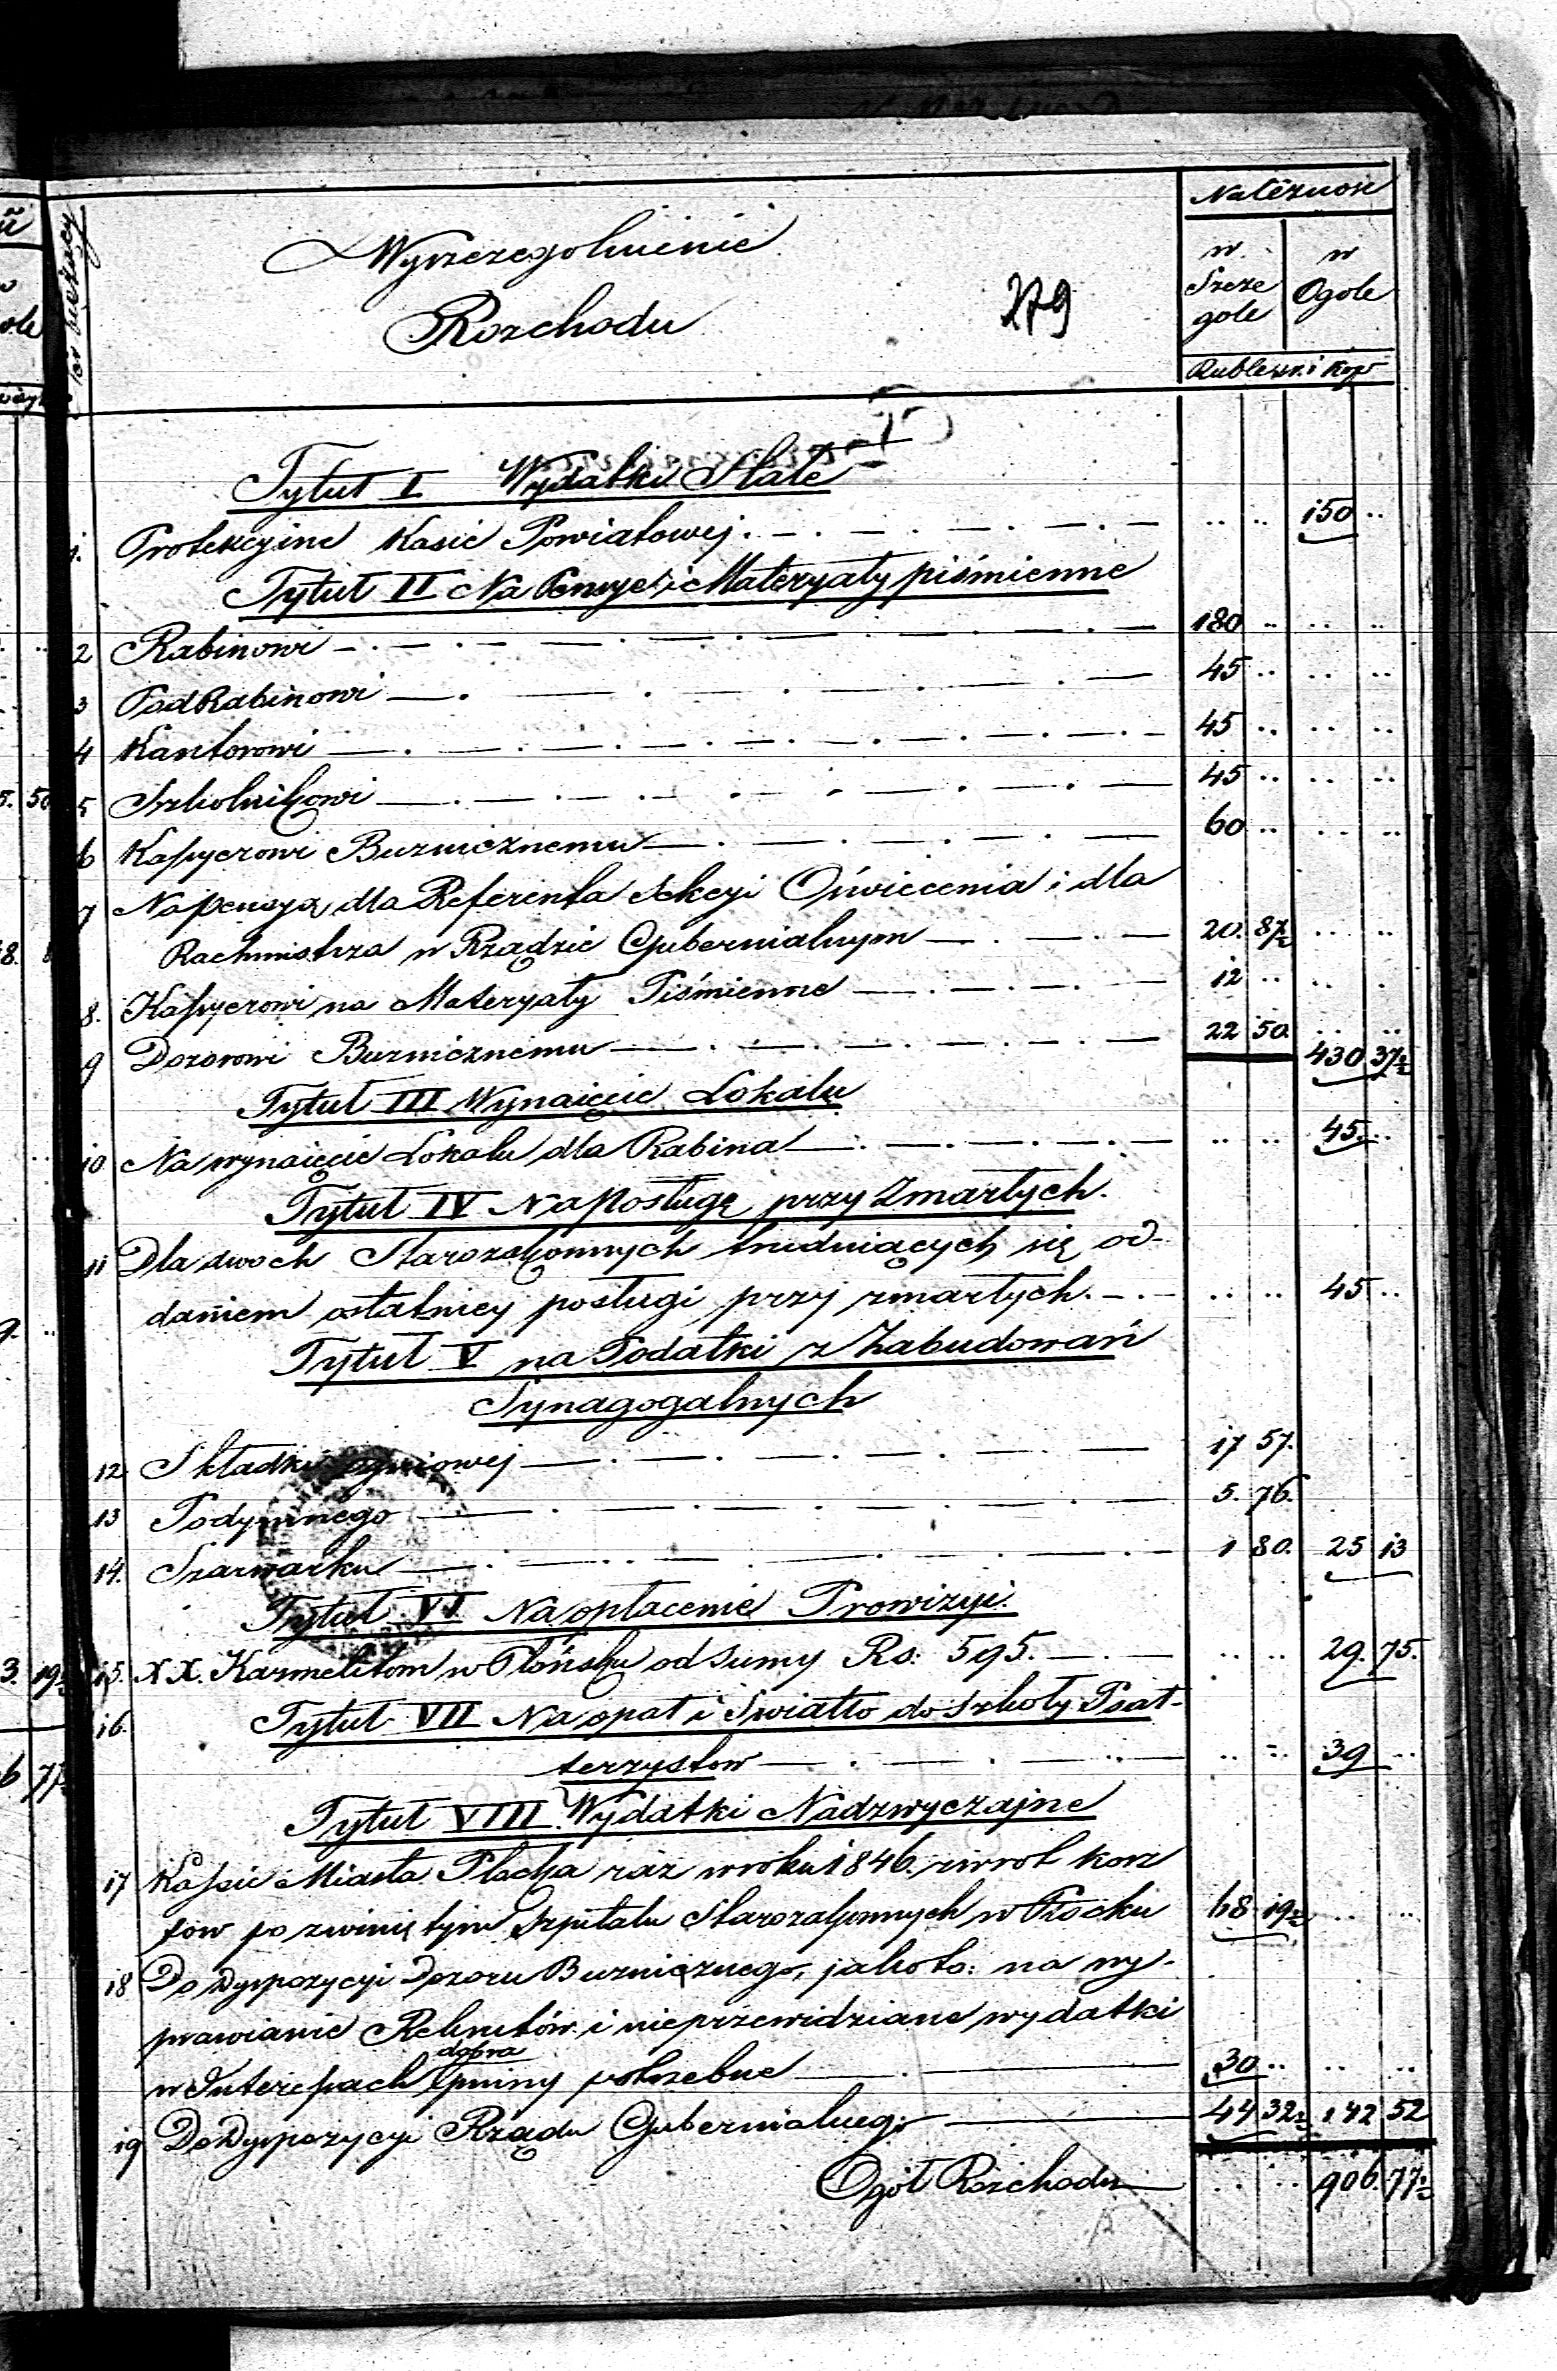 Należność
Wyszczegolnienie
w Szcze gole
w Ogole
Rozchodu
279
Rublesr. i Kop
Tytuł I Wydatki Stałe
1. Protekcyine Kasie Powiatowej . — . — . — . — 150 ..
Tytuł II Na Pensye i Materyały piśmienne
2 Rabinowi — . — . — 180 .. .. ..
3 PodRabinowi — . — 45 .. .. ..
4 Kantorowi — . — 45 .. .. ..
5 Szkolnikowi — . — 45 .. .. ..
6 Kassyerowi Bużnicznemu — . — 60 .. .. ..
7 Na pensyą dla Referenta Sekcyi Oświecenia i dla
Rachmistrza w Rządzie Gubernialnym — . — 20. 87½ .. ..
8. Kassyerowi na Materyały Piśmienne — . — 12 .. .. .
9 Dozorowi Bużnicznemu — . — 22 50. 430 37½
Tytuł III Wynaięcie Lokalu
10 Na wynaięcie Lokalu dla Rabina — . — .. .. 45. ..
Tytuł IV Na Posługę przy Zmarłych.
11 Dla dwoch Starozakonnych trudniących się od-
daniem ostatniey posługi przy zmarłych. — . — .. .. 45 ..
Tytuł V na Podatki z Zabudowań
Synagogalnych
12 Składki ogniowej — . — 17 57.
13 Podymnego — . — 5. 76.
14. Szarwarku — . — 1 80. 25 13
Tytuł VI Na opłacenie Prowizyi.
15. X X. Karmelitom w Płońsku od Sumy Rs: 595. — . — .. .. 29. 75.
16. Tytuł VII Na opał i Swiatło do Szkoły Psał-
terzystow — . — .. .. 39 ..
Tytuł VIII Wydatki Nadzwyczajne
17 Kassie Miasta Płocka raz w roku 1846. zwrot kosz
tow po zwiniętym Szpitalu Starozakonnych w Płocku 68 19½ .. ..
18 Do Dyspozycyi Dozoru Bużnicznego, jakoto: na wy-
prawianie Rekrutów i nieprzewidziane wydatki
dobra
w Interessach Gminy potrzebne — 30 .. .. ..
19 Do Dyspozycyi Rządu Gubernialnego — 44 32½ 142 52
Ogół Rozchodu — .. .. 906. 77½